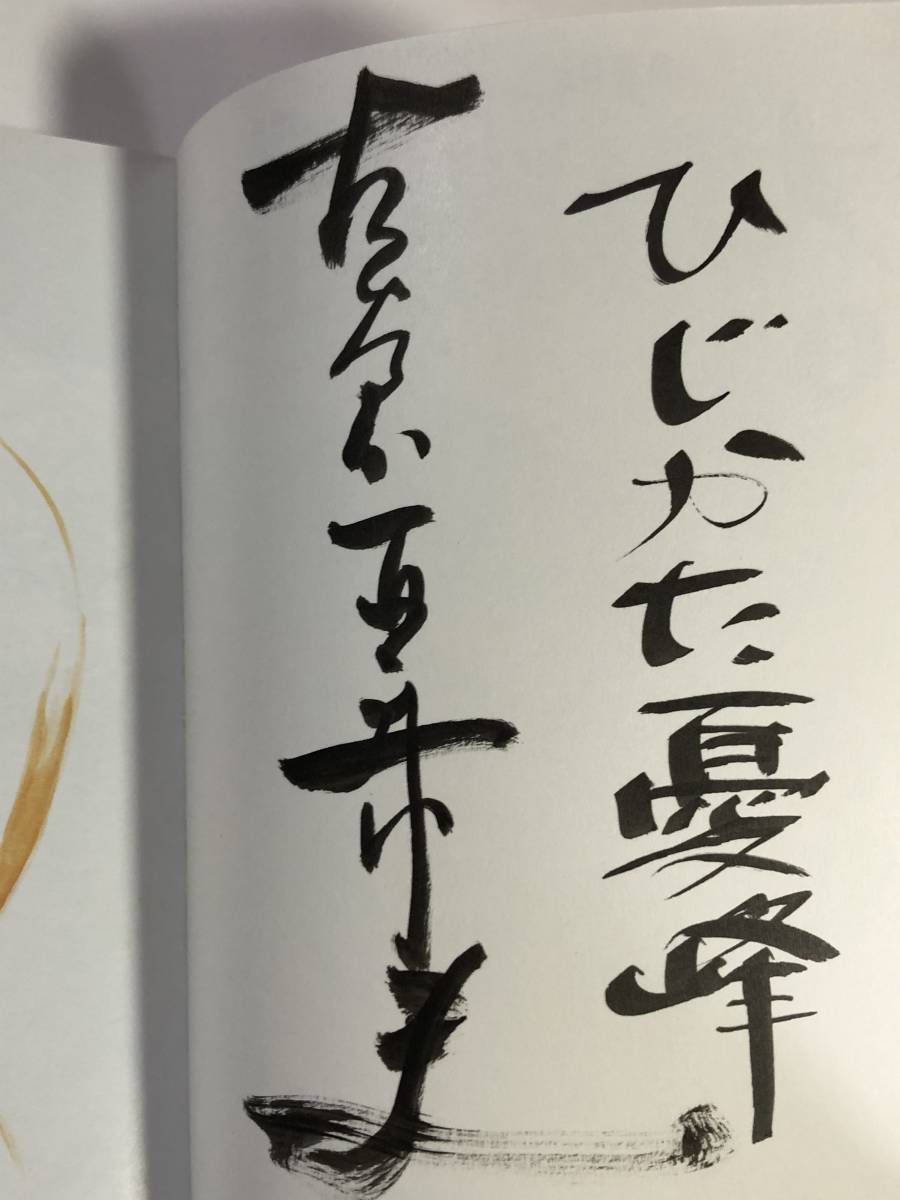 ひじかた憂峰
たなか亜希夫